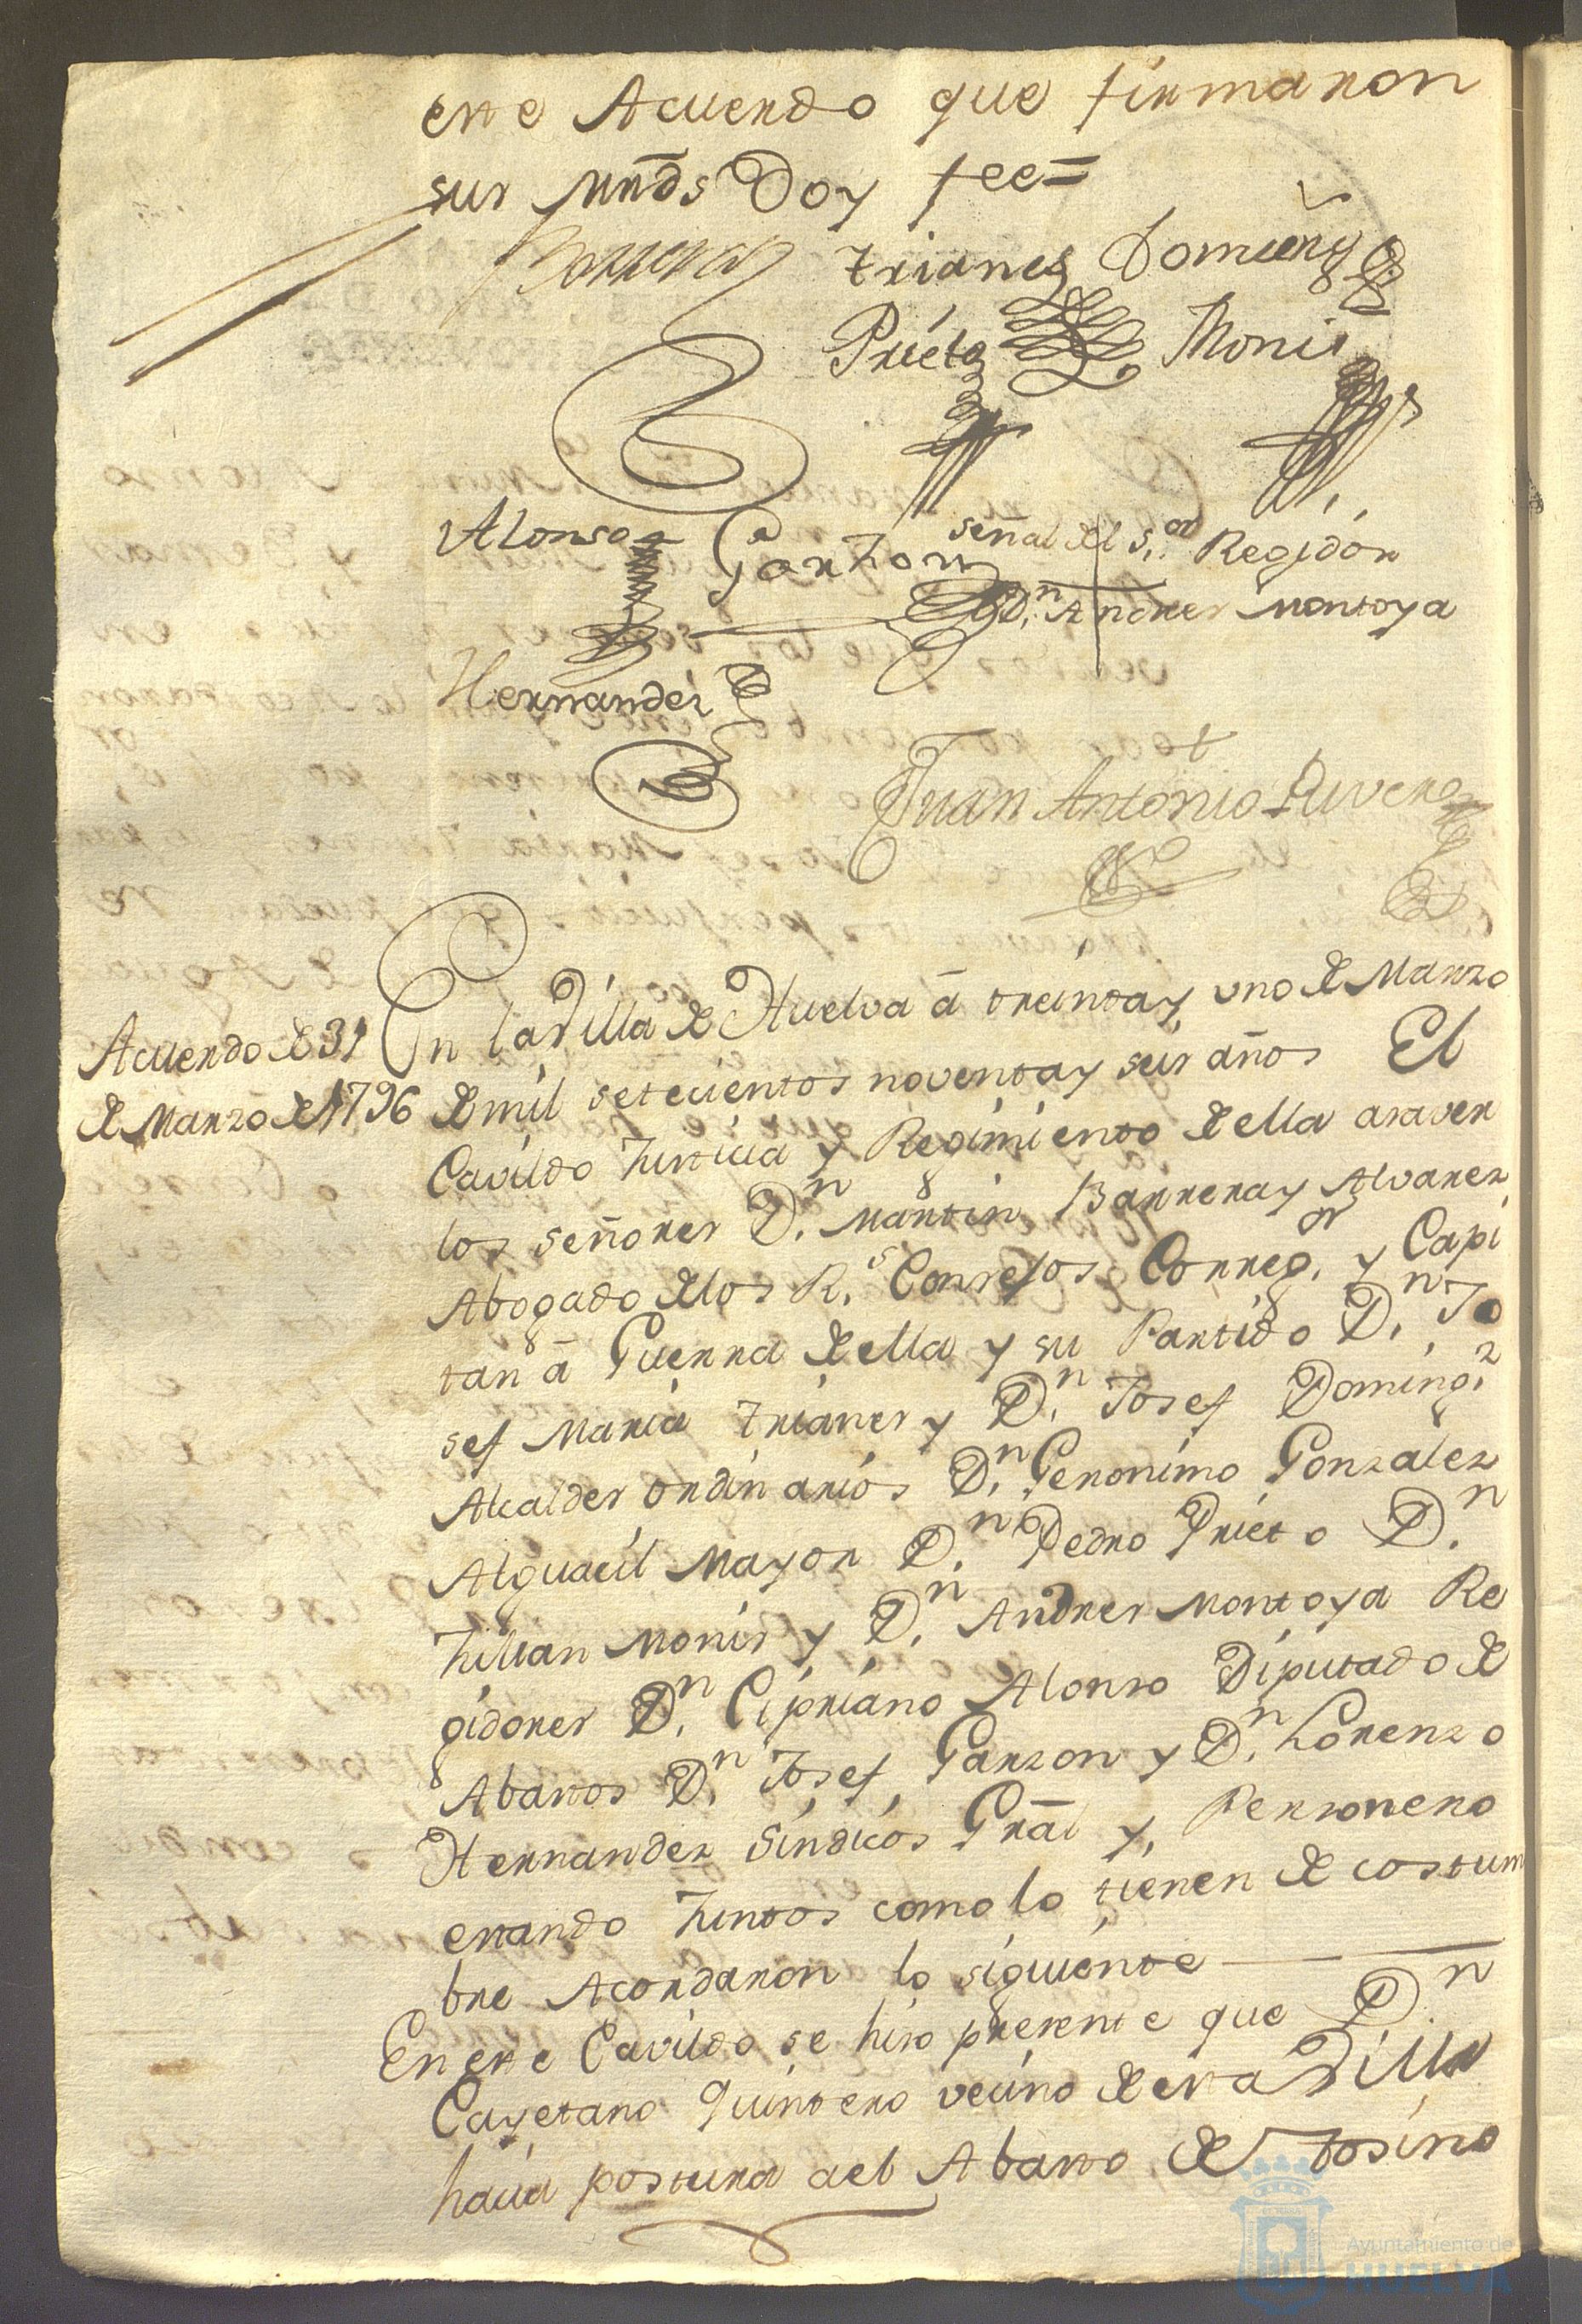 este Acuerdo que firmaron
sus mrãds Doy fee=
Barrera Trianes Doming.z
Prieto Monis
Alonso Garzon señal del S.or Regidor
D.n Andres Montoya
Hernandez
Juan Antonio Rivera
Acuerdo de 31
de Marzo de 1796
En la Villa de Huelva â treinta y uno de Marzo
de mil setecientos noventa y seis años El
Cavildo Justicia y Regimiento de ella asaver
los señores D.n Martin Barrera y Alvarez
Abogado de los R.s Consejos Correg.or y Capi
tan â Guerra de ella y su Partido D.n Jo
sef Maria Trianes y D.n Josef Doming.z
Alcaldes ordinarios D.n Geronimo Gonzalez
Alguacil Mayor D.n Pedro Prieto D.n
Julian Monis y D.n Andres Montoya Re
gidores D.n Cipriano Alonso Diputado de
Abastos D.n Josef Garzon y D.n Lorenzo
Hernandez Sindicos Grãl y Personero
estando Juntos como lo tienen de costum
bre Acordaron lo siguiente
En este Cavildo se hiso presente que D.n
Cayetano Quintero vecino de esta Villa
hacia postura ael Abasto de tosino
Ayuntamiento de
HUELVA